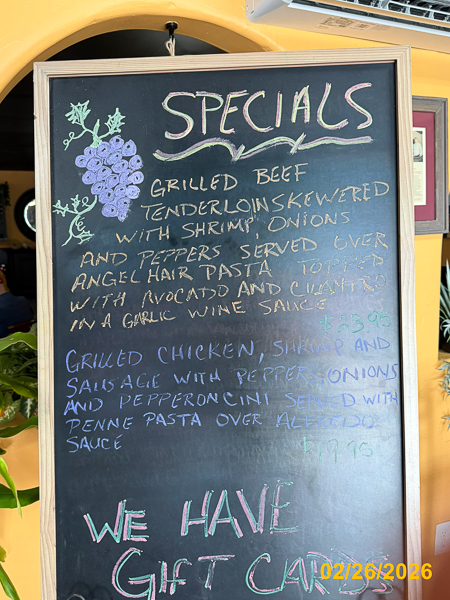 SPECIALS
GRILLED BEEF
TENDERLOIN SKEWERED
WITH SHRIMP, ONIONS
AND PEPPERS SERVED OVER
ANGEL HAIR PASTA TOPPED
WITH AVOCADO AND CILANTRO
IN A GARLIC WINE SAUCE
$23.95
GRILLED CHICKEN, SHRIMP AND
SAUSAGE WITH PEPPERS, ONIONS
AND PEPPERONCINI SERVED WITH
PENNE PASTA OVER ALFREDO
SAUCE $19.95
WE HAVE
GIFT CARDS
02/26/2026